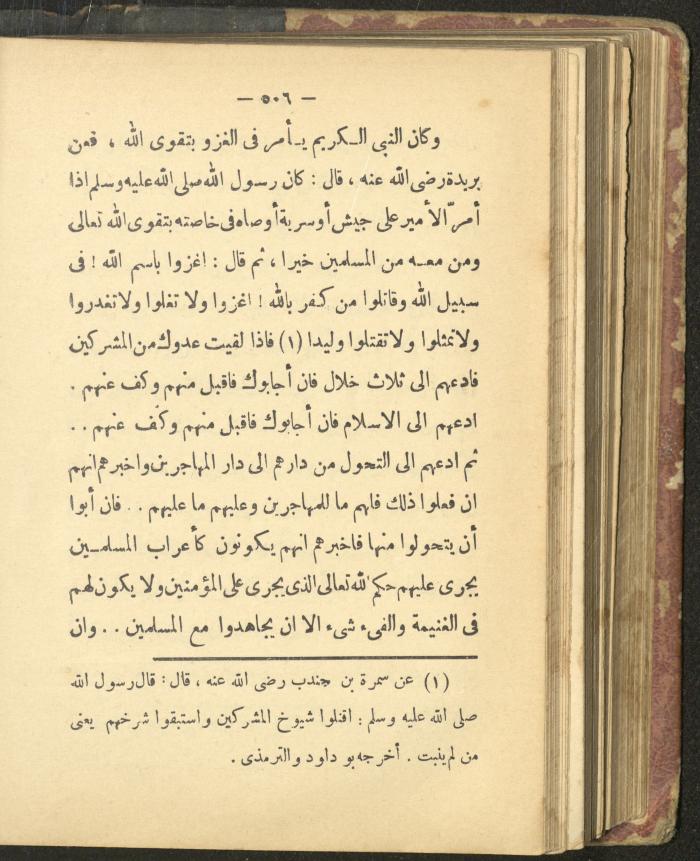 — ٥٠٦ —
وكان النبى الـكريم يـأمر فى الغزو بتقوى الله ، فعن
بريدة رضى الله عنه ، قال : كان رسول الله صلى الله عليه وسلم اذا
أمرّ الأمير على جيش أو سرية أوصاه فى خاصته بتقوى الله تعالى
ومن معـه من المسلمين خيرا ، ثم قال : اغزوا باسم الله ! فى
سبيل الله وقاتلوا من كـفر بالله ! اغزوا ولا تغلوا ولا تغدروا
ولا تمثلوا ولا تقتلوا وليدا (١) فاذا لقيت عدوك من المشركين
فادعهم الى ثلاث خلال فان أجابوك فاقبل منهم وكف عنهم .
ادعهم الى الاسلام فان أجابوك فاقبل منهم وكف عنهم . .
ثم ادعهم الى التحول من دارهم الى دار المهاجرين واخبرهم انهم
ان فعلوا ذلك فلهم ما للمهاجرين وعليهم ما عليهم . . فان أبوا
أن يتحولوا منها فاخبرهم انهم يكونون كأعراب المسلمـين
يجرى عليهم حكم الله تعالى الذى يجرى على المؤمنين ولا يكون لهم
فى الغنيمة والفىء شىء الا ان يجاهدوا مع المسلمين . . وان
(١) عن سمرة بن جندب رضى الله عنه ، قال : قال رسول الله
صلى الله عليه وسلم : اقتلوا شيوخ المشركين واستبقوا شرخهم يعنى
من لم ينبت . أخرجه بو داود والترمذى .